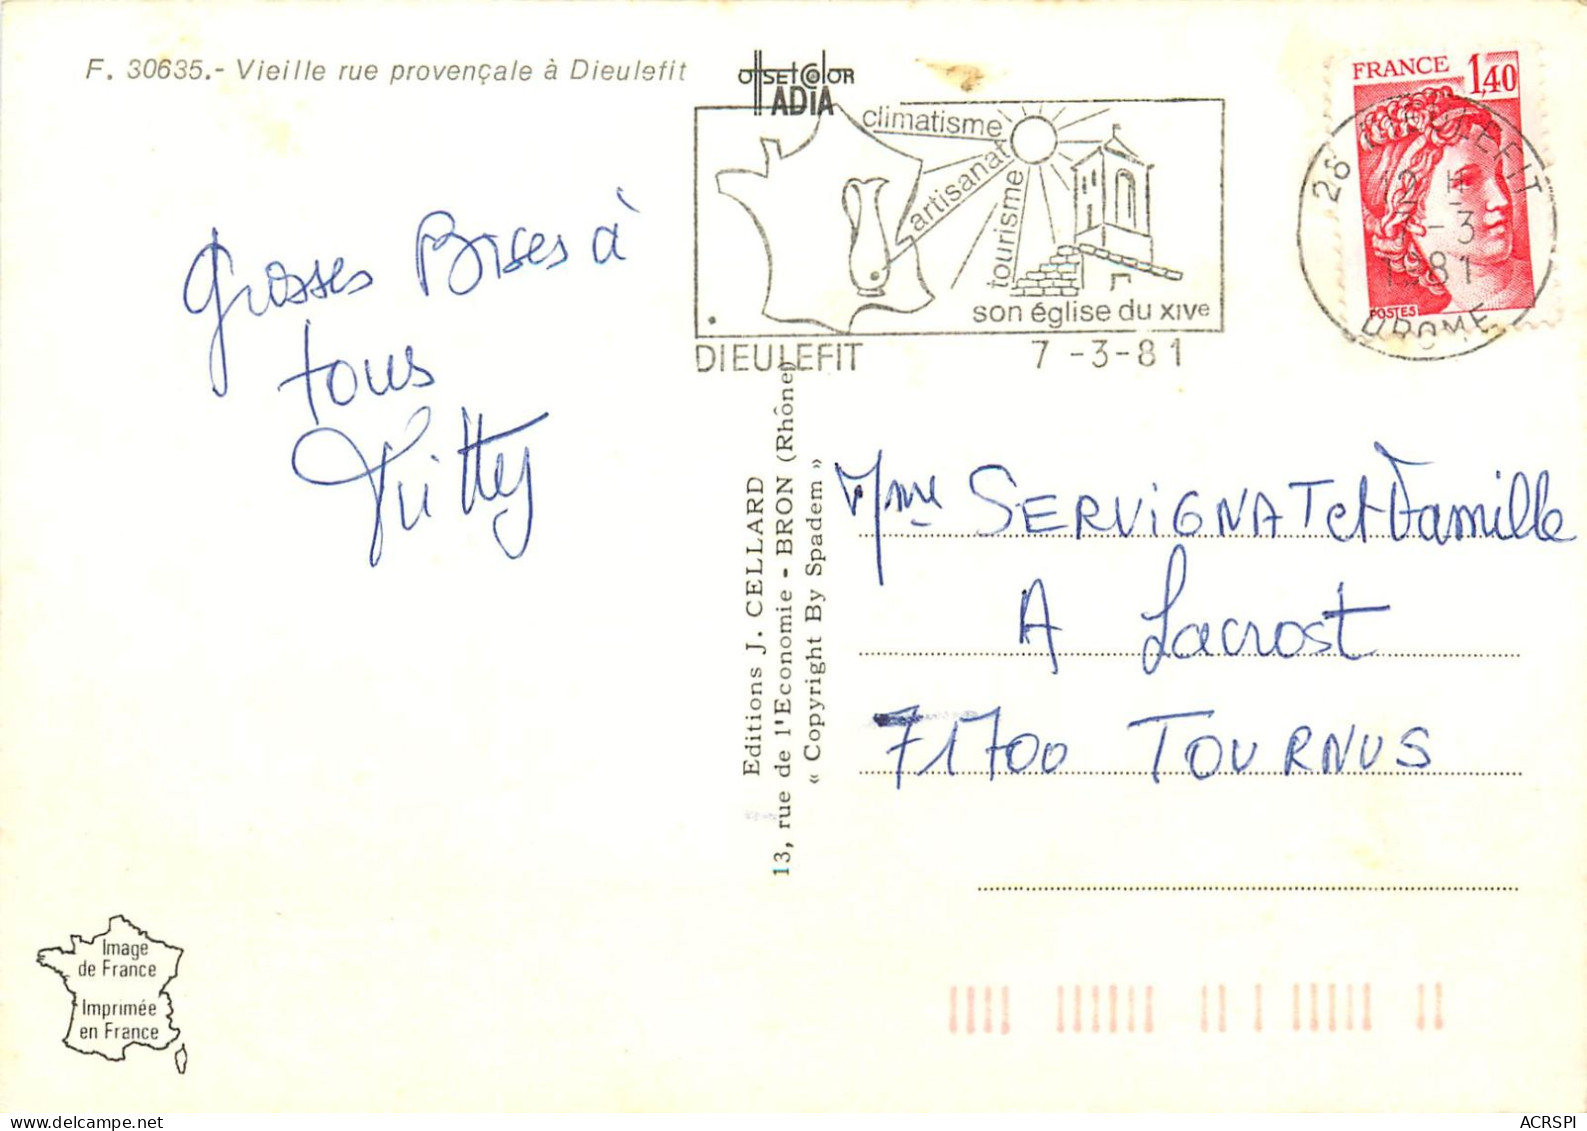 F. 30635.- Vieille rue provençale à Dieulefit
OffSEt COlOR
IADIA
FRANCE 1,40
POSTES
climatisme
artisanat
tourisme
son église du XIVe
DIEULEFIT 7 -3-81
26 DIEULEFIT
12 H
7-3
1981
DROME
Grosses Bises à
tous
Editions J. CELLARD
13, rue de l'Economie - BRON (Rhône)
« Copyright By Spadem »
Mme SERViGNAT et Famille
A Lacrost
71700 TOURNUS
Image
de France
Imprimée
en France
delcampe.net
ACRSPI